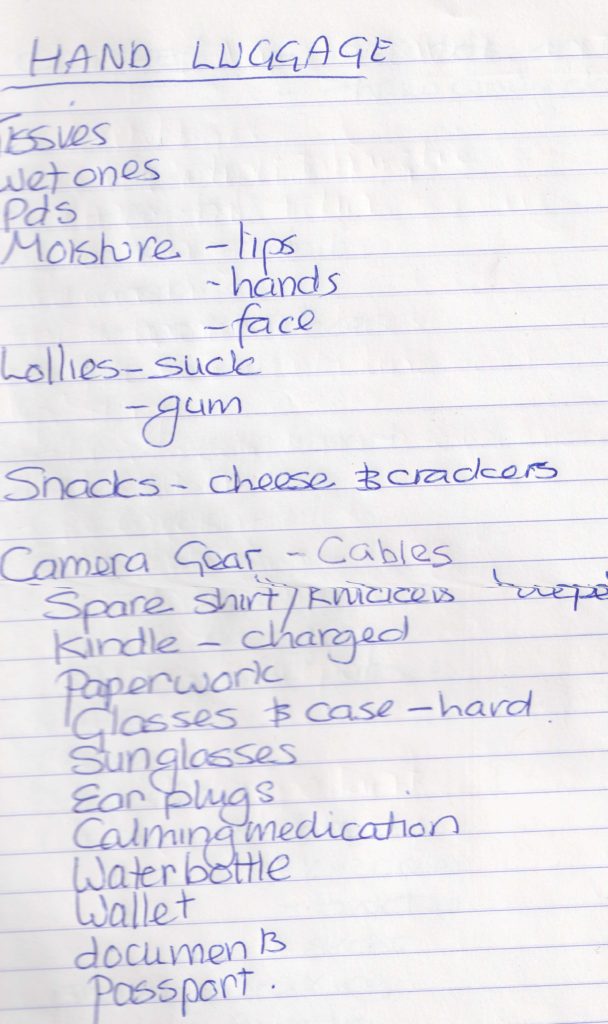 HAND LUGGAGE
Tissues
Wet ones
Pds
Moisture - lips
- hands
- face
Lollies - suck
- gum
Snacks - cheese & crackers
Camera Gear - Cables
Spare shirt / Knickers
Kindle - charged
Paperwork
Glasses & case - hard.
Sunglasses
Ear plugs
Calming medication
Water bottle
Wallet
documents
Passport.